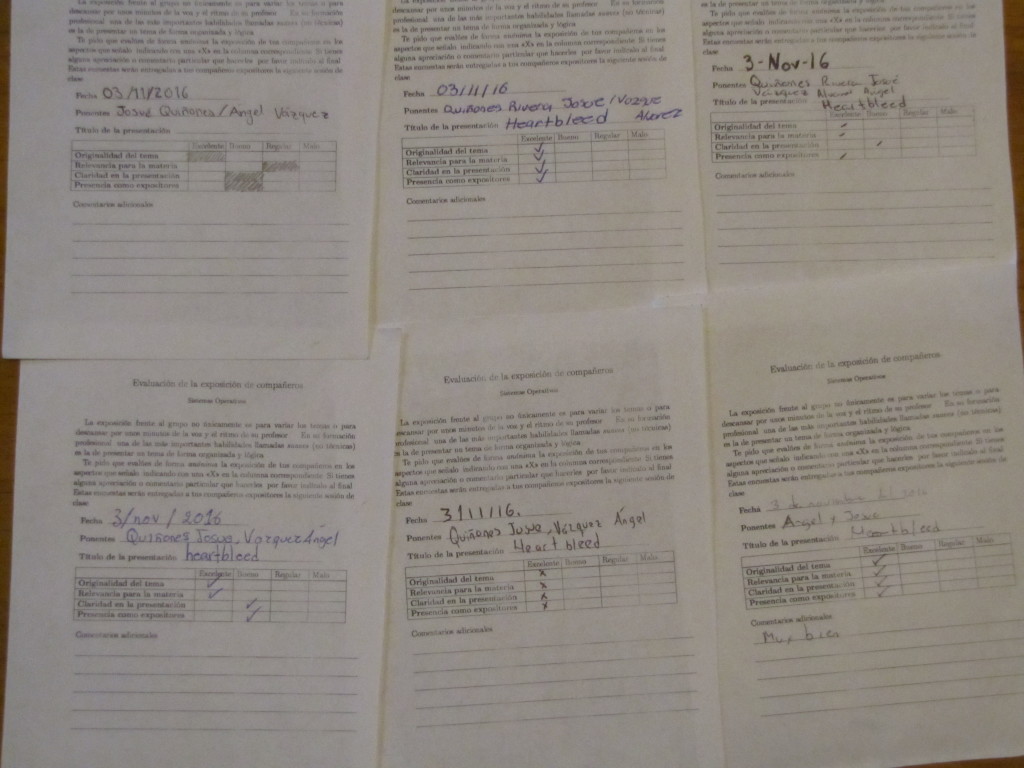 descansar por unos minutos de la voz y el ritmo de su profesor En su formación
profesional una de las más importantes habilidades llamadas suaves (no técnicas)
es la de presentar un tema de forma organizada y lógica
Te pido que evalúes de forma anónima la exposición de tus compañeros en los
aspectos que señalo indicando con una «X» en la columna correspondiente. Si tienes
alguna apreciación o comentario particular que hacerles por favor indícalo al final
Estas encuestas serán entregadas a tus compañeros expositores la siguiente sesión de
clase
Fecha 03/11/2016
Ponentes Josué Quiñones/Angel Vázquez
Título de la presentación
Excelente Bueno Regular Malo
Originalidad del tema
Relevancia para la materia
Claridad en la presentación
Presencia como expositores
Comentarios adicionales
descansar por unos minutos de la voz y el ritmo de su profesor En su formación
profesional una de las más importantes habilidades llamadas suaves (no técnicas)
es la de presentar un tema de forma organizada y lógica
Te pido que evalúes de forma anónima la exposición de tus compañeros en los
aspectos que señalo indicando con una «X» en la columna correspondiente. Si tienes
alguna apreciación o comentario particular que hacerles por favor indícalo al final
Estas encuestas serán entregadas a tus compañeros expositores la siguiente sesión de
clase
Fecha 03/11/16
Ponentes Quiñones Rivera Josue/Vazque
Título de la presentación Heartbleed
Excelente Bueno Regular Malo
Originalidad del tema
Relevancia para la materia
Claridad en la presentación
Presencia como expositores
Comentarios adicionales
es la de presentar un tema de forma organizada y lógica
Te pido que evalúes de forma anónima la exposición de tus compañeros en los
aspectos que señalo indicando con una «X» en la columna correspondiente. Si tienes
alguna apreciación o comentario particular que hacerles por favor indícalo al final
Estas encuestas serán entregadas a tus compañeros expositores la siguiente sesión de
clase
Fecha 3-Nov-16
Ponentes Quiñones Rivera José
Vázquez Angel
Título de la presentación Heartbleed
Excelente Bueno Regular Malo
Originalidad del tema
Relevancia para la materia
Claridad en la presentación
Presencia como expositores
Comentarios adicionales
Evaluación de la exposición de compañeros
Sistemas Operativos
La exposición frente al grupo no únicamente es para variar los temas o para
descansar por unos minutos de la voz y el ritmo de su profesor En su formación
profesional una de las más importantes habilidades llamadas suaves (no técnicas)
es la de presentar un tema de forma organizada y lógica
Te pido que evalúes de forma anónima la exposición de tus compañeros en los
aspectos que señalo indicando con una «X» en la columna correspondiente. Si tienes
alguna apreciación o comentario particular que hacerles por favor indícalo al final
Estas encuestas serán entregadas a tus compañeros expositores la siguiente sesión de
clase
Fecha 3/nov/2016
Ponentes Quiñones Josue, Vazquez Ángel
Título de la presentación heartbleed
Excelente Bueno Regular Malo
Originalidad del tema
Relevancia para la materia
Claridad en la presentación
Presencia como expositores
Comentarios adicionales
Evaluación de la exposición de compañeros
Sistemas Operativos
La exposición frente al grupo no únicamente es para variar los temas o para
descansar por unos minutos de la voz y el ritmo de su profesor En su formación
profesional una de las más importantes habilidades llamadas suaves (no técnicas)
es la de presentar un tema de forma organizada y lógica
Te pido que evalúes de forma anónima la exposición de tus compañeros en los
aspectos que señalo indicando con una «X» en la columna correspondiente Si tienes
alguna apreciación o comentario particular que hacerles por favor indícalo al final
Estas encuestas serán entregadas a tus compañeros expositores la siguiente sesión de
clase
Fecha 3/11/16.
Ponentes Quiñones Josue, Vázquez Ángel
Título de la presentación Heartbleed
Excelente Bueno Regular Malo
Originalidad del tema x
Relevancia para la materia x
Claridad en la presentación x
Presencia como expositores x
Comentarios adicionales
Evaluación de la exposición de compañeros
Sistemas Operativos
La exposición frente al grupo no únicamente es para variar los temas o para
descansar por unos minutos de la voz y el ritmo de su profesor En su formación
profesional una de las más importantes habilidades llamadas suaves (no técnicas)
es la de presentar un tema de forma organizada y lógica
Te pido que evalúes de forma anónima la exposición de tus compañeros en los
aspectos que señalo indicando con una «X» en la columna correspondiente. Si tienes
alguna apreciación o comentario particular que hacerles por favor indícalo al final
Estas encuestas serán entregadas a tus compañeros expositores la siguiente sesión de
clase
Fecha 3 de noviembre
Ponentes Angel y Josue
Título de la presentación Heartbleed
Excelente Bueno Regular Malo
Originalidad del tema
Relevancia para la materia
Claridad en la presentación
Presencia como expositores
Comentarios adicionales
Muy bien